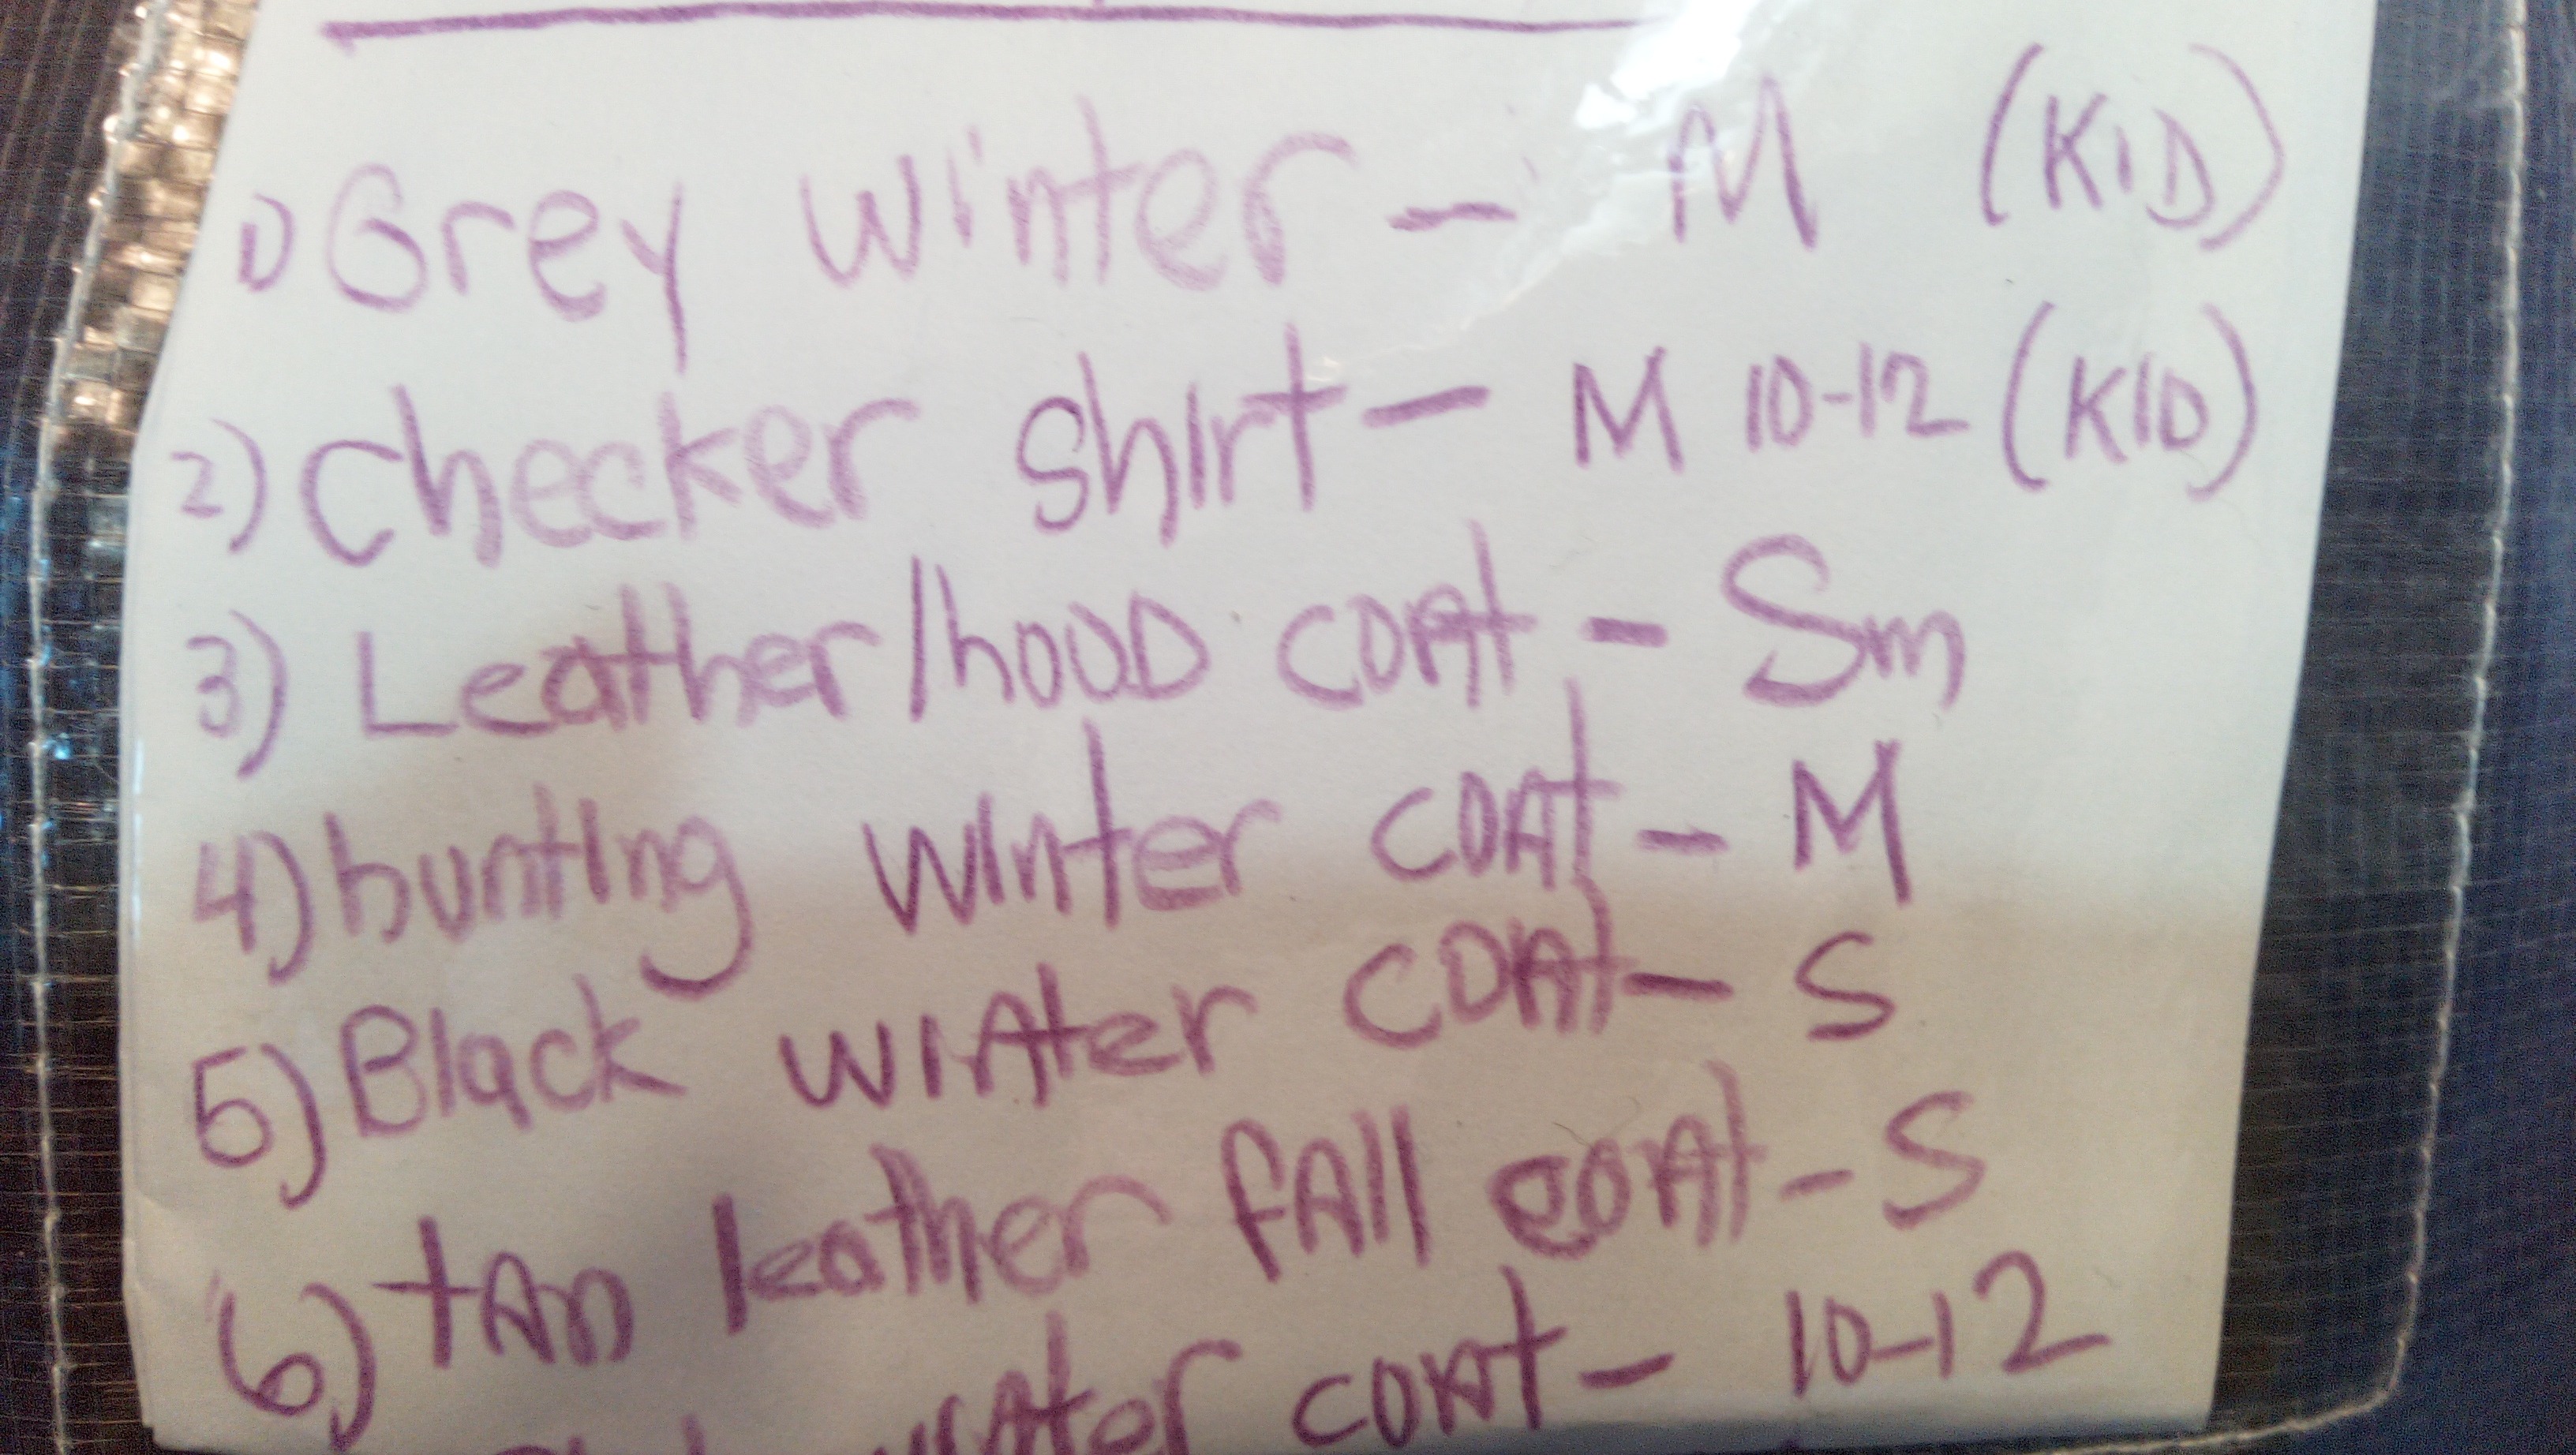 1) Grey winter - M (KID)
2) checker shirt - M 10-12 (KID)
3) Leather/hooD coAt - Sm
4) hunting winter coAt - M
5) Black winter coAt - S
6) tAn leather fAll coAt - S
winter coAt - 10-12